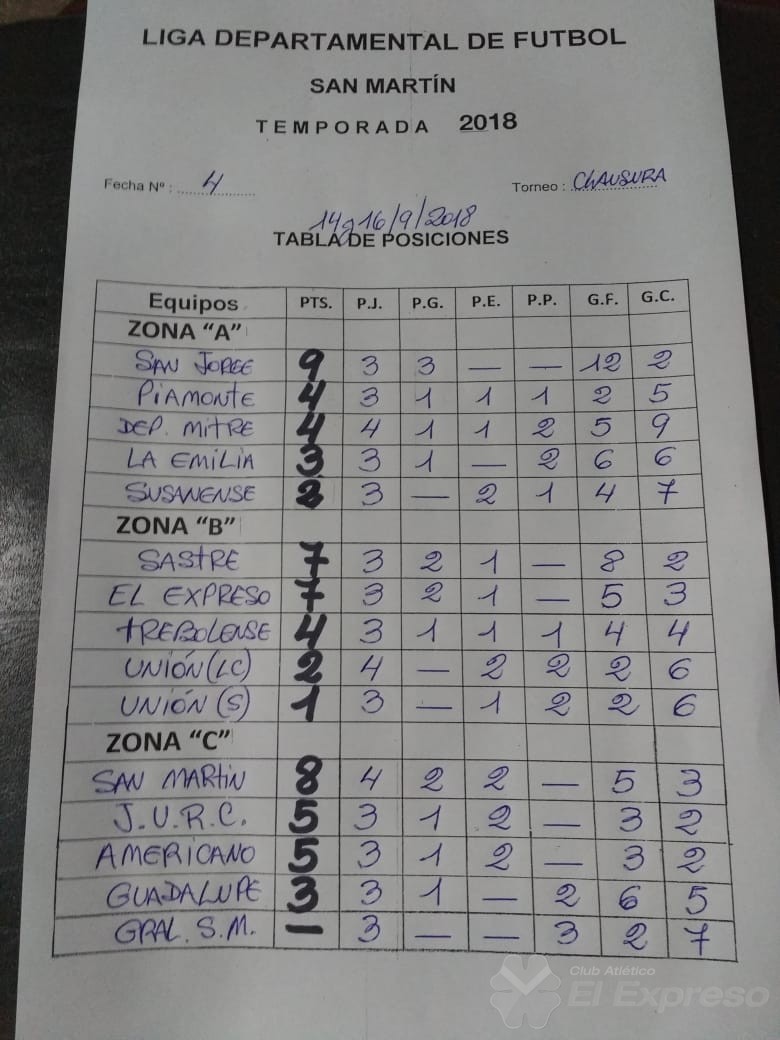 LIGA DEPARTAMENTAL DE FUTBOL
SAN MARTÍN
TEMPORADA 2018
Fecha Nº : 4 Torneo : CLAUSURA
14 y 16/9/2018
TABLA DE POSICIONES
Equipos PTS. P.J. P.G. P.E. P.P. G.F. G.C.
ZONA "A"
SAN JORGE 9 3 3 — — 12 2
PIAMONTE 4 3 1 1 1 2 5
DEP. MITRE 4 4 1 1 2 5 9
LA EMILIA 3 3 1 — 2 6 6
SUSANENSE 2 3 — 2 1 4 7
ZONA "B"
SASTRE 7 3 2 1 — 8 2
EL EXPRESO 7 3 2 1 — 5 3
TREBOLENSE 4 3 1 1 1 4 4
UNIÓN (LC) 2 4 — 2 2 2 6
UNIÓN (S) 1 3 — 1 2 2 6
ZONA "C"
SAN MARTIN 8 4 2 2 — 5 3
J.U.R.C. 5 3 1 2 — 3 2
AMERICANO 5 3 1 2 — 3 2
GUADALUPE 3 3 1 — 2 6 5
GRAL. S.M. — 3 — — 3 2 7
Club Atlético
El Expreso